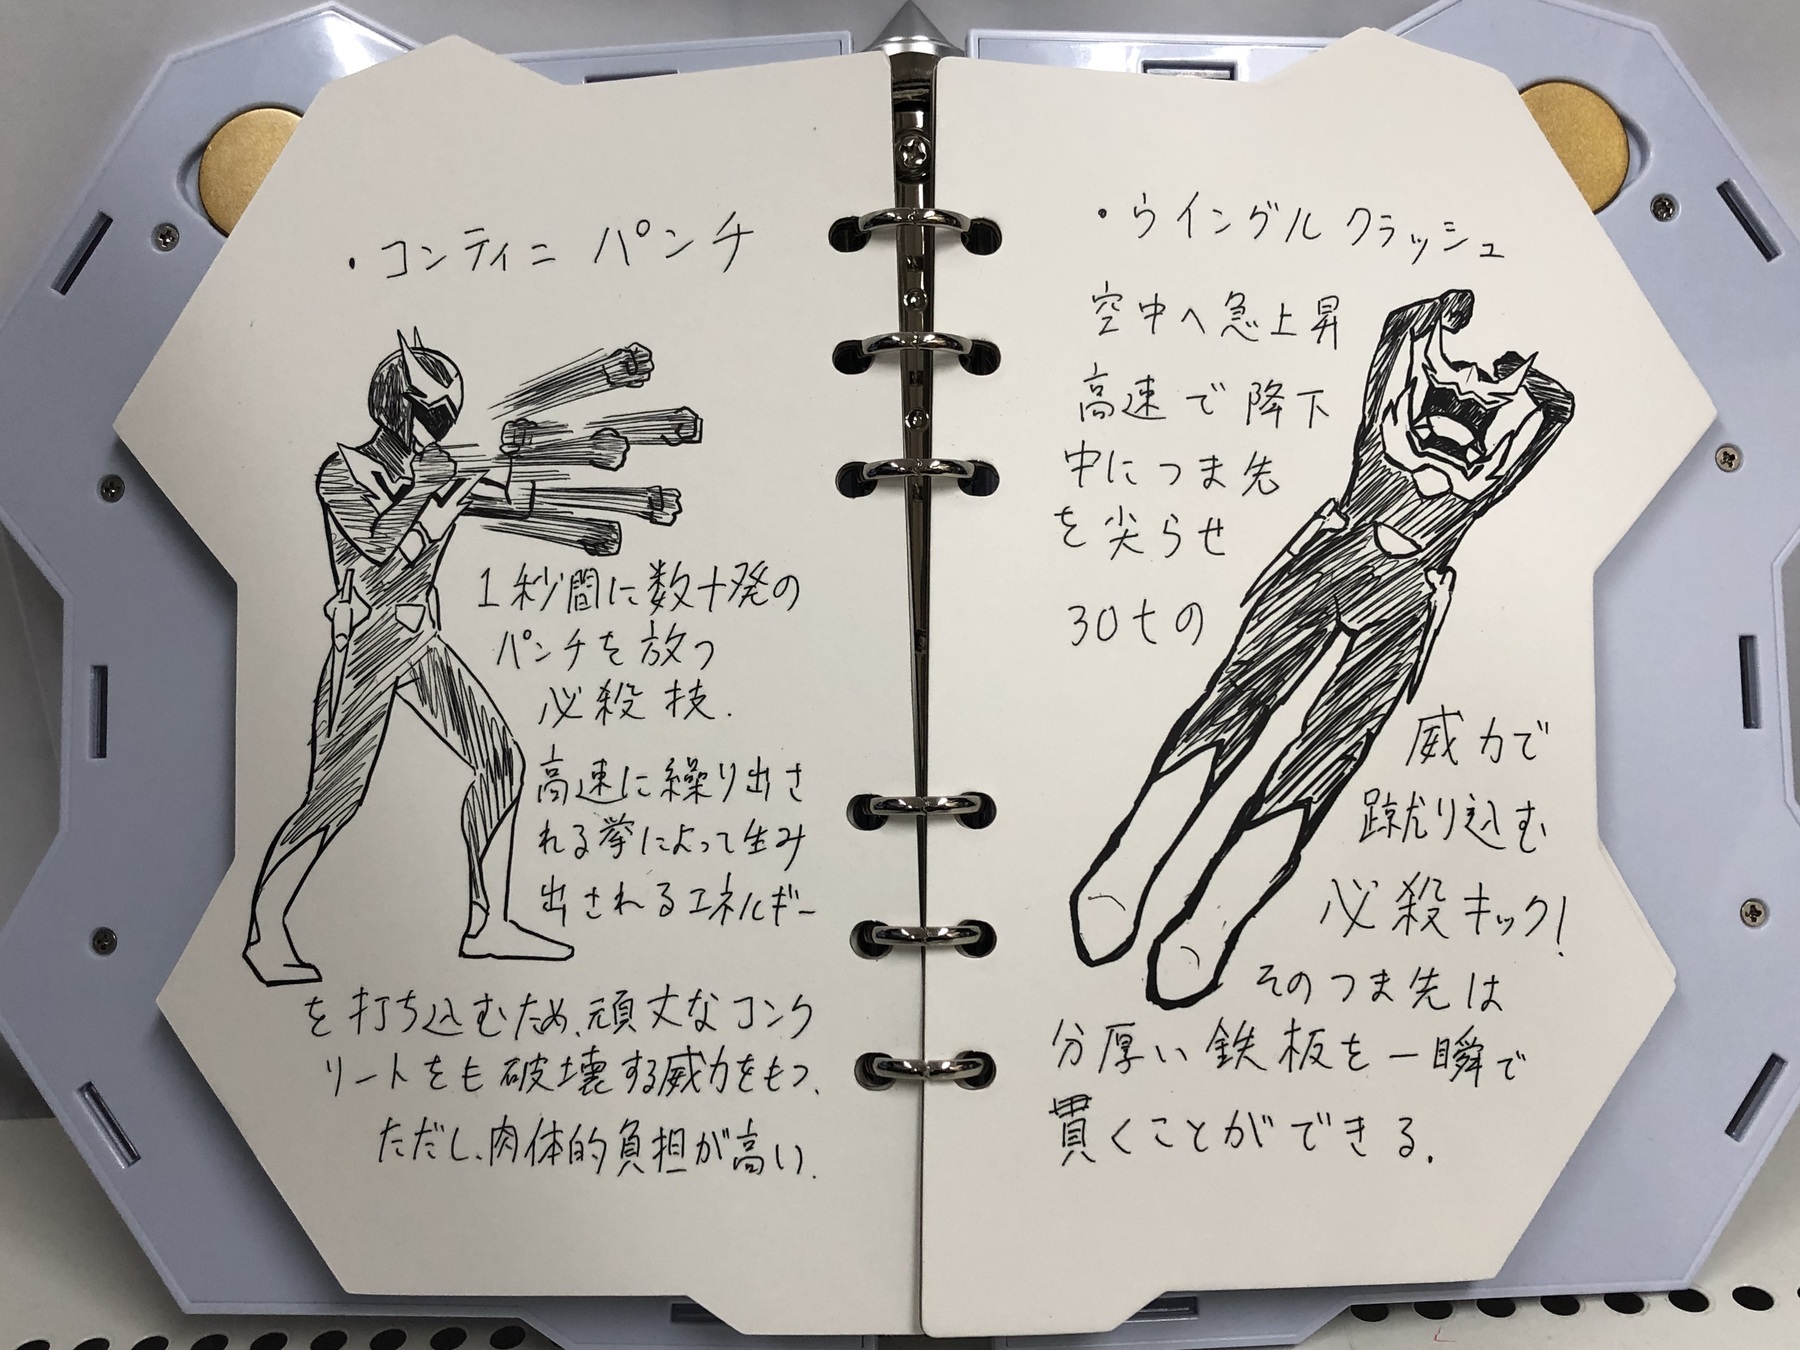 ・コンティニ パンチ
1秒間に数十発の
パンチを放つ
必殺技.
高速に繰り出さ
れる拳によって生み
出されるエネルギー
を打ち込むため、頑丈なコンク
リートをも破壊する威力をもつ、
ただし、肉体的負担が高い.
・ウイングルクラッシュ
空中へ急上昇
高速で降下
中につま先
を尖らせ
30tの
威力で
蹴り込む
必殺キック!
そのつま先は
分厚い鉄板を一瞬で
貫くことができる.